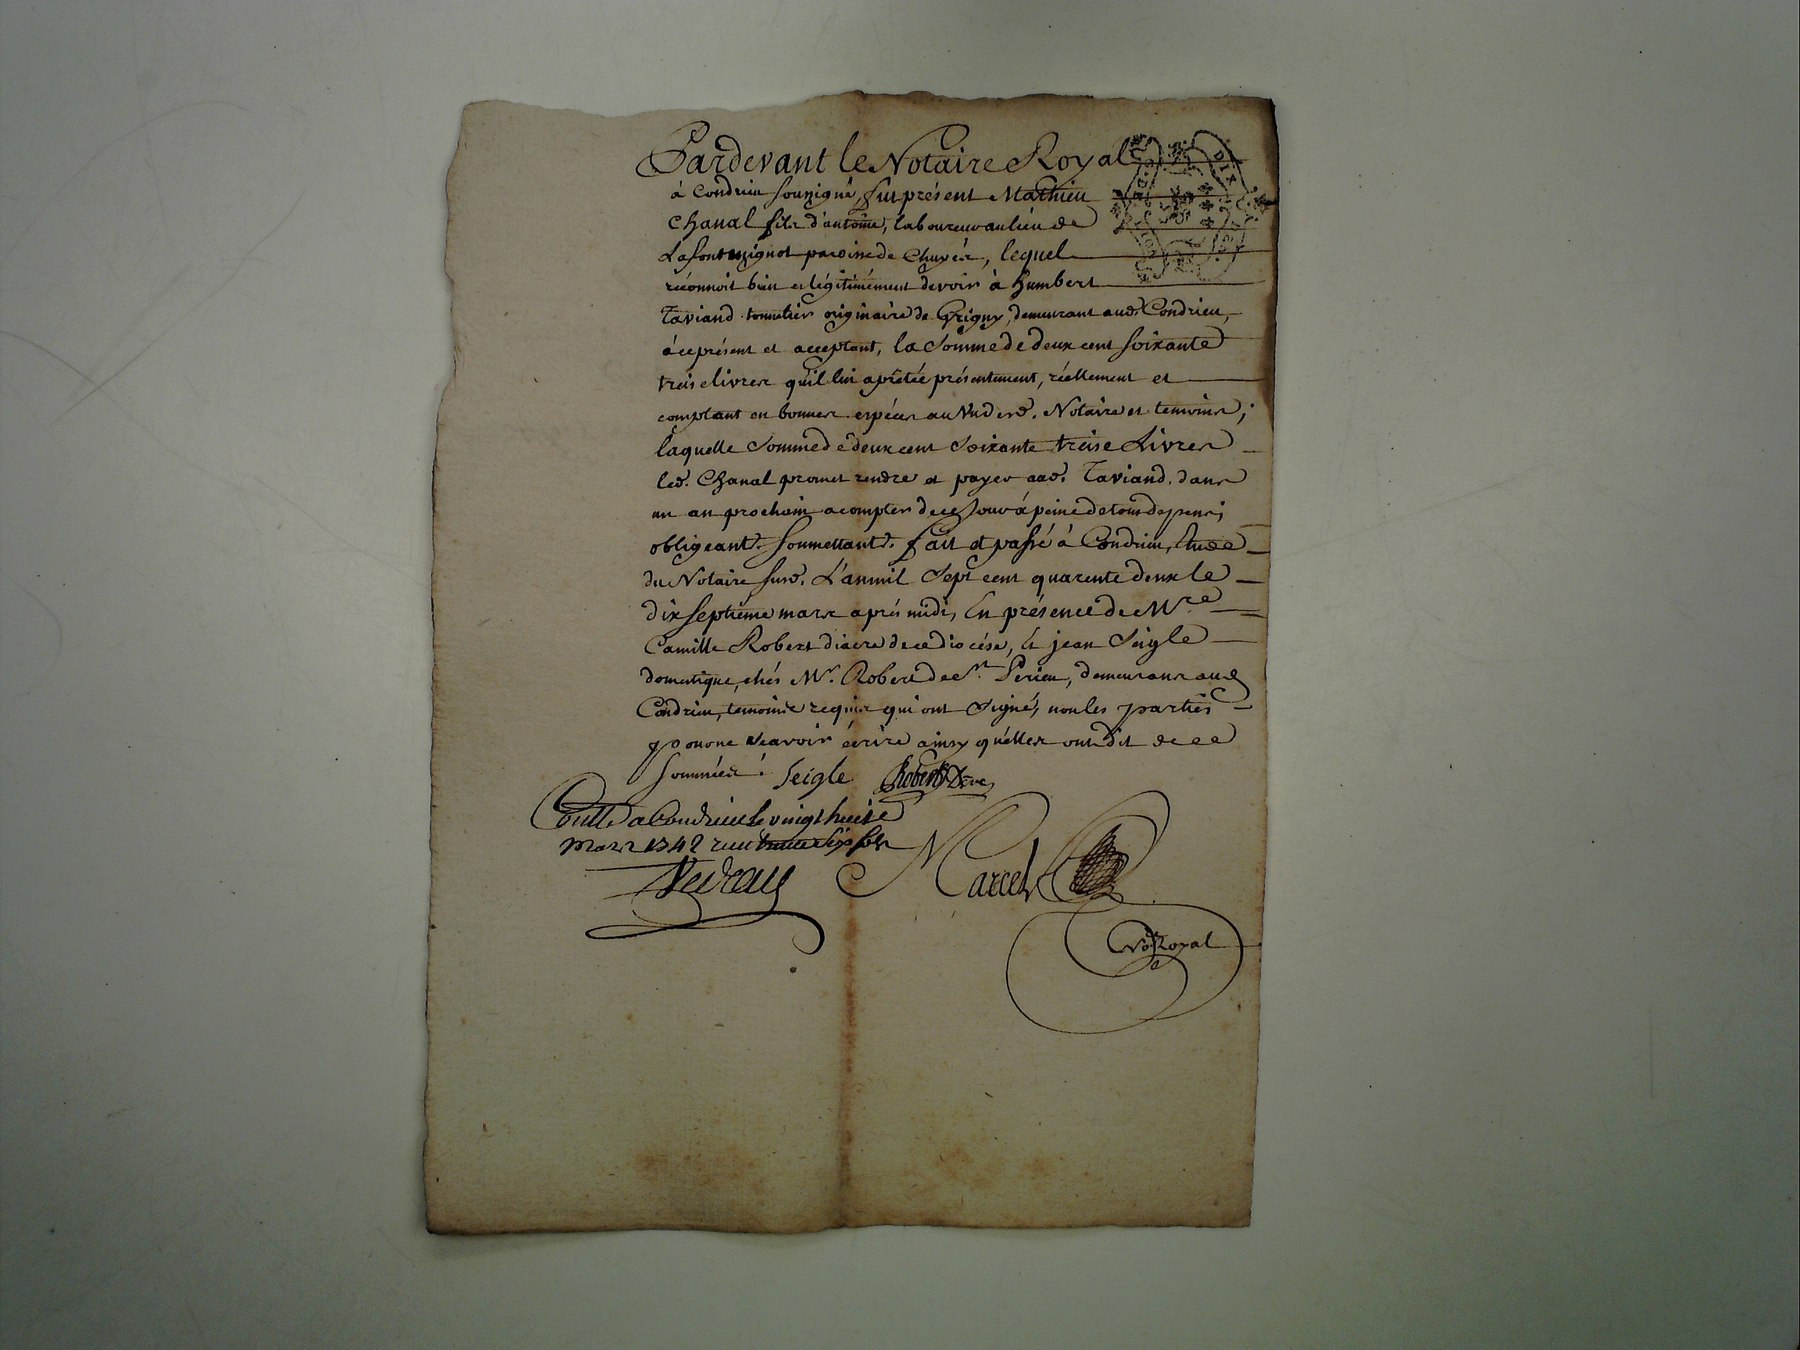 Pardevant le Notaire Royal
à Condrieu soussigné, fut présent Mathieu
Chanal fils d'antoine, laboureur au lieu de
parroisse de Chuyés, lequel
réconnoit bien et légitimément devoir à humbert
Taviand tonnelier originaire de Grigny, demeurant aud. Condrieu,
àce présent et acceptant, la Somme de deux cent soixante
treise livres qu'il lui a pretée présentement, réellement et
comptant en bonnes espéces au vu des d. Notaire et temoins;
laquelle Somme de deux cent soixante treise Livres
led. Chanal promet rendre et payer aud. Taviand, dans
un an prochain a compter de ce jour à peine de tous depens;
obligeant. soumettant. fait et passé à Condrieu, Etude
du Notaire susd. L'an mil Sept cent quarente deux le
dix septiéme mars aprés midi, En présence de Mre
Camille Robert diacre de ce diocése, & jean Seigle
domestique, chés Mr. Robert de St. Perieu, demeurans aud.
Condrieu, temoins requis qui ont Signé, non les parties
pour ne scavoir écrire ainsy qu'elles ont dit de ce
sommées. Seigle Robert Dcre
Conllé a Condrieu le vingt huit
mars 1742 reçu six sols
Marcel
No.re Royal
DIX